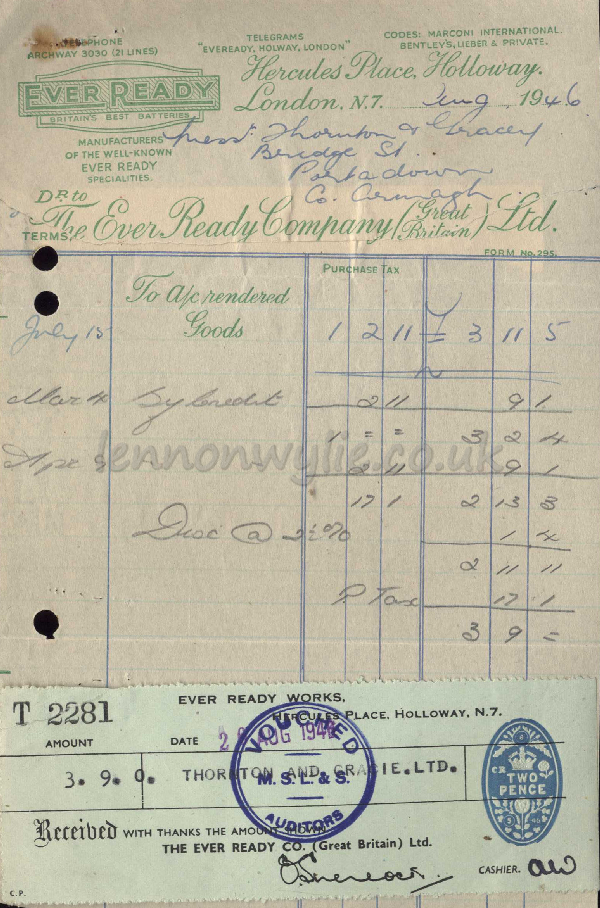 TELEPHONE
ARCHWAY 3030 (21 LINES)
TELEGRAMS
"EVEREADY, HOLWAY, LONDON"
CODES: MARCONI INTERNATIONAL.
BENTLEY'S, LIEBER & PRIVATE.
EVER READY
BRITAIN'S BEST BATTERIES
Hercules Place, Holloway.
London, N.7. Aug 1946
MANUFACTURERS
OF THE WELL-KNOWN
EVER READY
SPECIALITIES.
Messrs Thornton & Gracey
Bridge St.
Portadown
Co. Armagh
Dr to
The Ever Ready Company (Great Britain) Ltd.
TERMS,
FORM No. 295.
PURCHASE TAX
To A/c rendered
July 15 Goods 1 2 11 3 11 5
Mar 4 By Credit 2 11 9 1
1 = = 3 2 4
lennonwylie.co.uk
Apr 2 11 9 1
17 1 2 13 3
Disc @ 2½% 1 4
2 11 11
P. Tax 17 1
3 9 =
T 2281
EVER READY WORKS,
HERCULES PLACE, HOLLOWAY, N.7.
AMOUNT
DATE AUG 1946
3. 9. 0. THORNTON AND GRACIE.LTD.
VOUCHED
M. S. L. & S.
AUDITORS
TWO
PENCE
Received WITH THANKS THE AMOUNT
THE EVER READY CO. (Great Britain) Ltd.
CASHIER. aw
C.P.